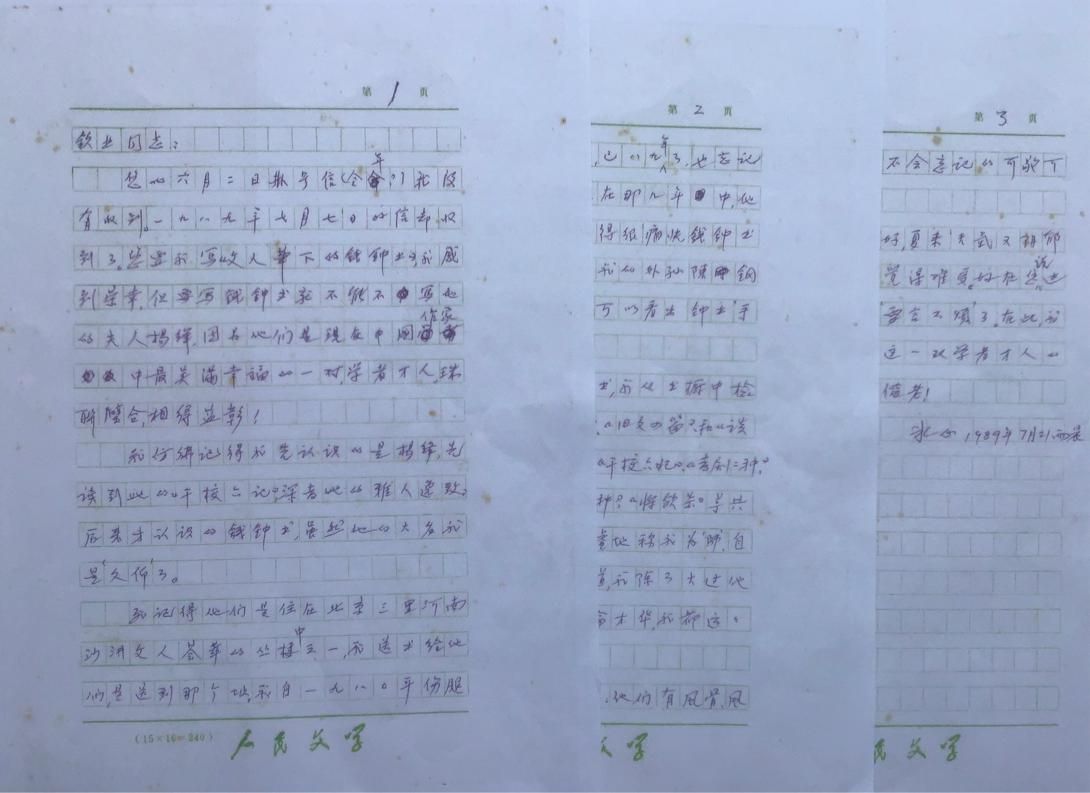 第 1 页
钦业同志:
您的六月二日挂号信(今年?)我没
有收到。一九八九年七月七日的信却收
到了。您要我写文人笔下的钱钟书,我感
到荣幸,但写钱钟书就不能不写他
的夫人杨绛,因为他们是现在中国作家
中最美满幸福的一对,学者才人,珠
联璧合,相得益彰!
我仿佛记得我先认识的是杨绛,先
读到她的《干校六记》,深喜她的雅人深致,
后来才认识的钱钟书,虽然他的大名我
是“久仰”了。
我记得他们是住在北京三里河南
沙沟文人荟萃的丛楼中之一,我送书给他
们,是送到那个地址,我自一九八〇年伤腿
(15×16=240)
人民文学
第 2 页
已八九年了,也忘记
在那几年中,他
得很痛快,钱钟书
我的外孙陈钢
可以看出钟书手
书,我从书橱中检
《旧文四篇》和《谈
《干校六记》、《喜剧二种》
种?《将饮茶》等共
查他称我为“师”,自
我除了大过他
才华,我都远。
他们有风骨,风
文学
第 3 页
不会忘记的可敬可
好,夏来大武又
觉得难复。好在您说过
“要言不烦”了,在此,我
这一双学者才人的
偕老!
冰心 1989年7月21
民文学